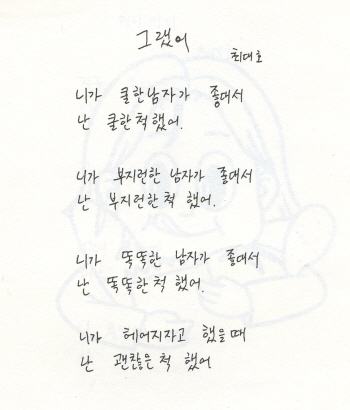 그랬어
최대호
니가 쿨한남자가 좋대서
난 쿨한 척 했어.
니가 부지런한 남자가 좋대서
난 부지런한 척 했어.
니가 똑똑한 남자가 좋대서
난 똑똑한 척 했어.
니가 헤어지자고 했을때
난 괜찮은 척 했어